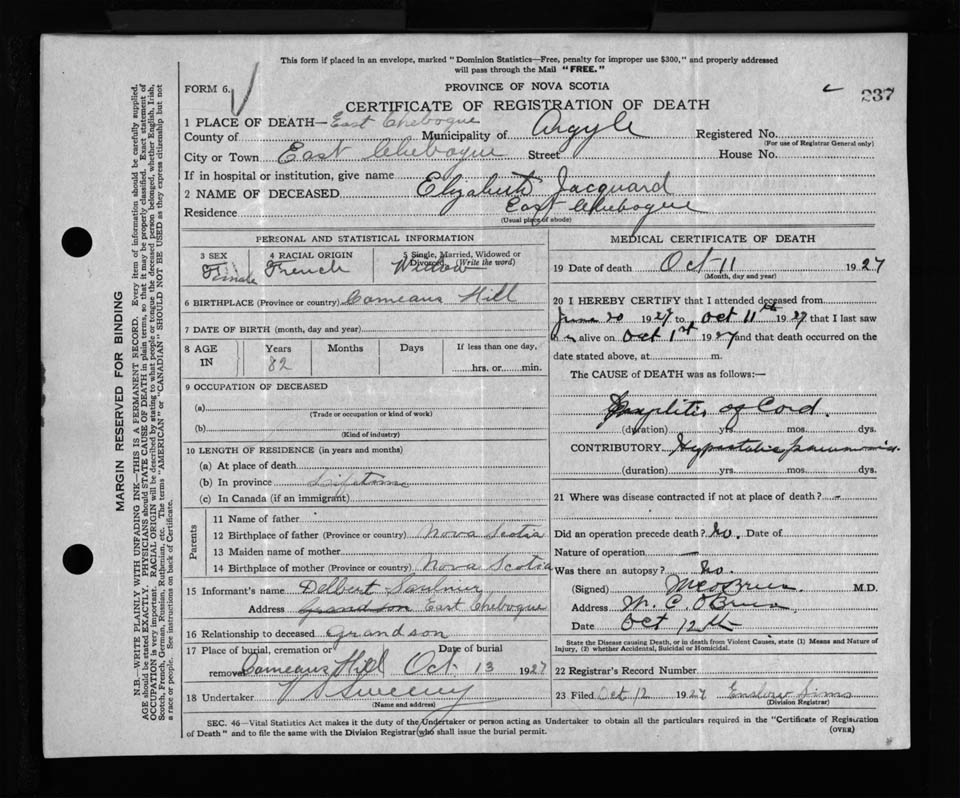 This form if placed in an envelope, marked "Dominion Statistics—Free, penalty for improper use $300," and properly addressed
will pass through the Mail "FREE."
FORM 6.
PROVINCE OF NOVA SCOTIA
237
CERTIFICATE OF REGISTRATION OF DEATH
1 PLACE OF DEATH— East Chebogue
County of Municipality of Argyle Registered No.
(For use of Registrar General only)
City or Town East Chebogue Street House No.
If in hospital or institution, give name
2 NAME OF DECEASED. Elizabeth Jacquard
Residence East Chebogue
(Usual place of abode)
PERSONAL AND STATISTICAL INFORMATION
3 SEX 4 RACIAL ORIGIN 5 Single, Married, Widowed or
Divorced (Write the word)
Female French Widow
6 BIRTHPLACE (Province or country) Comeaus Hill
7 DATE OF BIRTH (month, day and year)
8 AGE IN Years Months Days If less than one day,
82 hrs. or min.
9 OCCUPATION OF DECEASED
(a)
(Trade or occupation or kind of work)
(b)
(Kind of industry)
10 LENGTH OF RESIDENCE (in years and months)
(a) At place of death
(b) In province Lifetime
(c) In Canada (if an immigrant)
Parents
11 Name of father
12 Birthplace of father (Province or country) Nova Scotia
13 Maiden name of mother
14 Birthplace of mother (Province or country) Nova Scotia
15 Informant's name Delbert Saulnier
Address Grandson East Chebogue
16 Relationship to deceased grandson
17 Place of burial, cremation or Date of burial
removal Comeaus Hill Oct. 13 1927
18 Undertaker V S Sweeny
(Name and address)
MEDICAL CERTIFICATE OF DEATH
19 Date of death Oct 11 1927
(Month, day and year)
20 I HEREBY CERTIFY that I attended deceased from
June 20 1927 to Oct 11th 1927 that I last saw
h er alive on Oct 1st 1927 and that death occurred on the
date stated above, at m.
The CAUSE of DEATH was as follows:—
of Cord.
(duration) yrs. mos. dys.
CONTRIBUTORY Hypostatic pneumonia.
(duration) yrs. mos. dys.
21 Where was disease contracted if not at place of death? -
Did an operation precede death? No. Date of
Nature of operation —
Was there an autopsy? No.
(Signed) M.D.
Address W. C. O'Brien
Date Oct 12th
State the Disease causing Death, or in death from Violent Causes, state (1) Means and Nature of
Injury, (2) whether Accidental, Suicidal or Homicidal.
22 Registrar's Record Number
23 Filed Oct 12 1927 Enslow Sims
(Division Registrar)
SEC. 46—Vital Statistics Act makes it the duty of the Undertaker or person acting as Undertaker to obtain all the particulars required in the "Certificate of Registration
of Death" and to file the same with the Division Registrar who shall issue the burial permit.
(OVER)
MARGIN RESERVED FOR BINDING
N.B.—WRITE PLAINLY WITH UNFADING INK—THIS IS A PERMANENT RECORD. Every item of information should be carefully supplied.
AGE should be stated EXACTLY. PHYSICIANS should STATE CAUSE OF DEATH in plain terms, so that it may be properly classified. Exact statement of
OCCUPATION is very important. RACIAL ORIGIN will be described by stating to what people or tongue the deceased person belonged, whether English, Irish,
Scotch, French, German, Russian, Ruthenian, etc. The terms "AMERICAN" or "CANADIAN" SHOULD NOT BE USED as they express citizenship but not
a race or people. See instructions on back of Certificate.